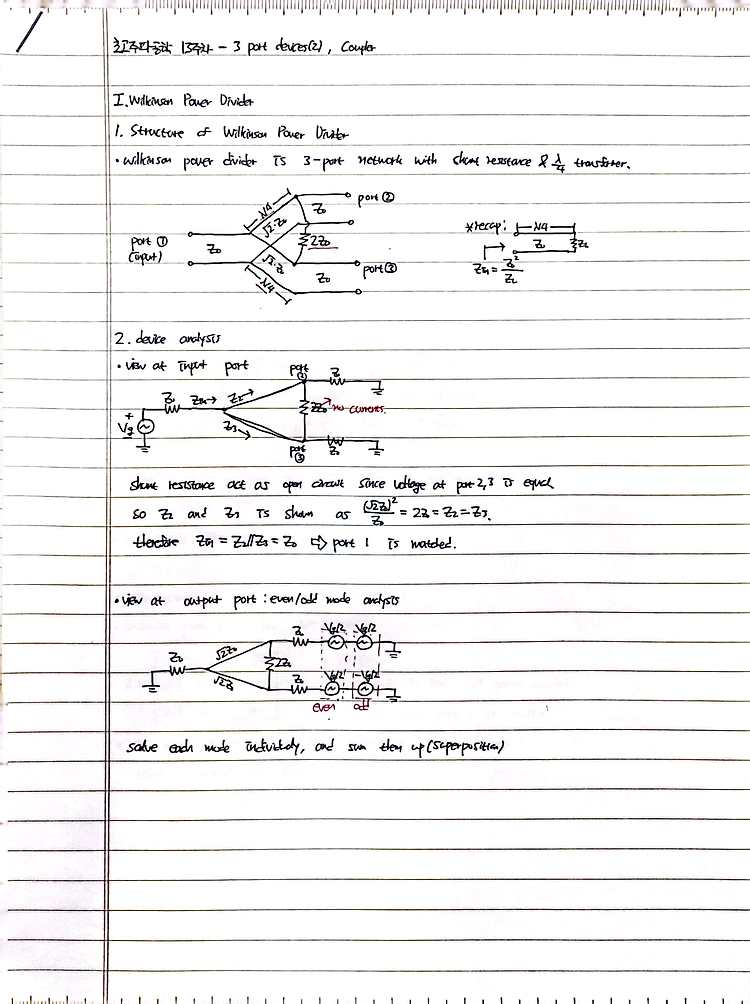 초고주파공학 13주차 - 3 port devices(2), Coupler
I. Wilkinson Power Divider
1. Structure of Wilkinson Power Divider
• wilkinson power divider is 3-port network with shunt resistance & λ/4 transformer.
λ/4
√2·Z₀
Z₀
port ②
port ①
(input)
Z₀
2Z₀
√2·Z₀
λ/4
Z₀
port ③
*recap:
λ/4
Z₀
Z_L
Z_in = Z₀²/Z_L
2. device analysis
• view at input port
port ②
Z₀
Z₀
Z_in →
Z₂
2Z₀
no currents.
+
Vg
Z₃
port ③
Z₀
shunt resistance act as open circuit since voltage at port 2,3 is equal
so Z₂ and Z₃ is shown as (√2Z₀)²/Z₀ = 2Z₀ = Z₂ = Z₃.
therefore Z_in = Z₂//Z₃ = Z₀ ⇒ port 1 is matched.
• view at output port : even/odd mode analysis
Z₀
√2Z₀
Z₀
Vg/2
Vg/2
2Z₀
√2Z₀
Z₀
Vg/2
-Vg/2
even
odd
solve each mode individuly, and sum them up (superposition)